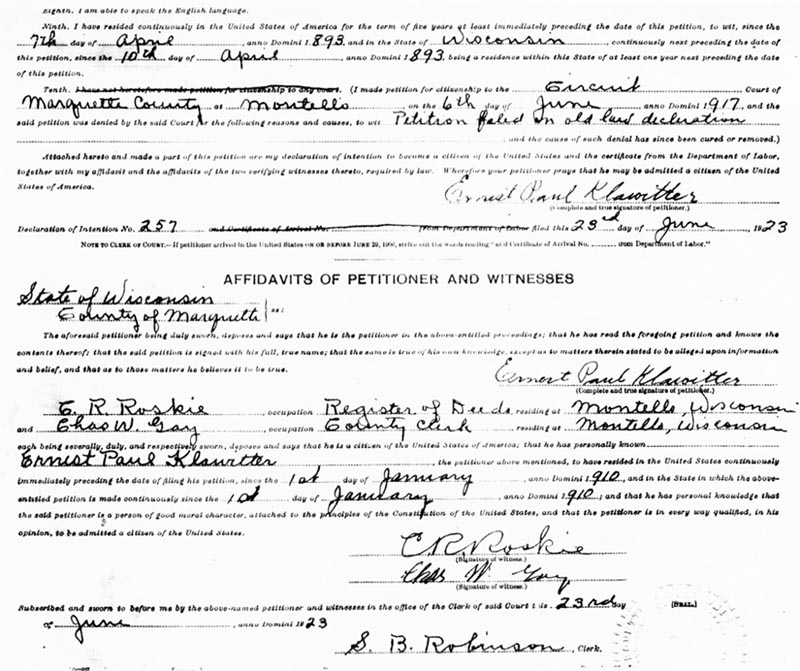 Eighth. I am able to speak the English language.
Ninth. I have resided continuously in the United States of America for the term of five years at least immediately preceding the date of this petition, to wit, since the
7th day of April, anno Domini 1893, and in the State of Wisconsin, continuously next preceding the date of
this petition, since the 10th day of April anno Domini 1893, being a residence within this State of at least one year next preceding the date
of this petition.
Tenth. I have not heretofore made petition for citizenship to any court. (I made petition for citizenship to the Circuit Court of
Marquette County at Montello on the 6th day of June anno Domini 1917, and the
said petition was denied by the said Court for the following reasons and causes, to wit Petition filed on old law declaration
, and the cause of such denial has since been cured or removed.)
Attached hereto and made a part of this petition are my declaration of intention to become a citizen of the United States and the certificate from the Department of Labor,
together with my affidavit and the affidavits of the two verifying witnesses thereto, required by law. Wherefore your petitioner prays that he may be admitted a citizen of the United
States of America.
Ernest Paul Klawitter
(Complete and true signature of petitioner.)
Declaration of Intention No. 257 and Certificate of Arrival No. from Department of Labor filed this 23rd day of June, 1923
NOTE TO CLERK OF COURT.—If petitioner arrived in the United States ON OR BEFORE JUNE 29, 1906, strike out the words reading "and Certificate of Arrival No. from Department of Labor."
AFFIDAVITS OF PETITIONER AND WITNESSES
State of Wisconsin
County of Marquette ss:
The aforesaid petitioner being duly sworn, deposes and says that he is the petitioner in the above-entitled proceedings; that he has read the foregoing petition and knows the
contents thereof; that the said petition is signed with his full, true name; that the same is true of his own knowledge, except as to matters therein stated to be alleged upon information
and belief, and that as to those matters he believes it to be true.
Ernest Paul Klawitter
(Complete and true signature of petitioner.)
E. R. Roskie, occupation Register of Deeds residing at Montello, Wisconsin
and Chas W. Gay, occupation County Clerk residing at Montello, Wisconsin
each being severally, duly, and respectively sworn, deposes and says that he is a citizen of the United States of America; that he has personally known
Ernest Paul Klawitter, the petitioner above mentioned, to have resided in the United States continuously
immediately preceding the date of filing his petition, since the 1st day of January, anno Domini 1910, and in the State in which the above-
entitled petition is made continuously since the 1st day of January, anno Domini 1910, and that he has personal knowledge that
the said petitioner is a person of good moral character, attached to the principles of the Constitution of the United States, and that the petitioner is in every way qualified, in his
opinion, to be admitted a citizen of the United States.
E. R. Roskie
(Signature of witness.)
Chas W. Gay
(Signature of witness.)
Subscribed and sworn to before me by the above-named petitioner and witnesses in the office of the Clerk of said Court this 23rd day
of June, anno Domini 1923
[SEAL.]
S. B. Robinson, Clerk.